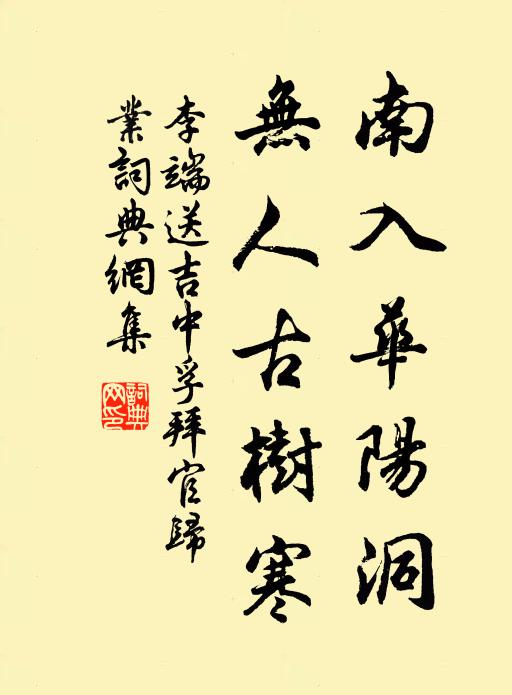 南入華陽洞
無人古樹寒
李端送吉中孚拜官歸
業詞典網集
詞典
网印